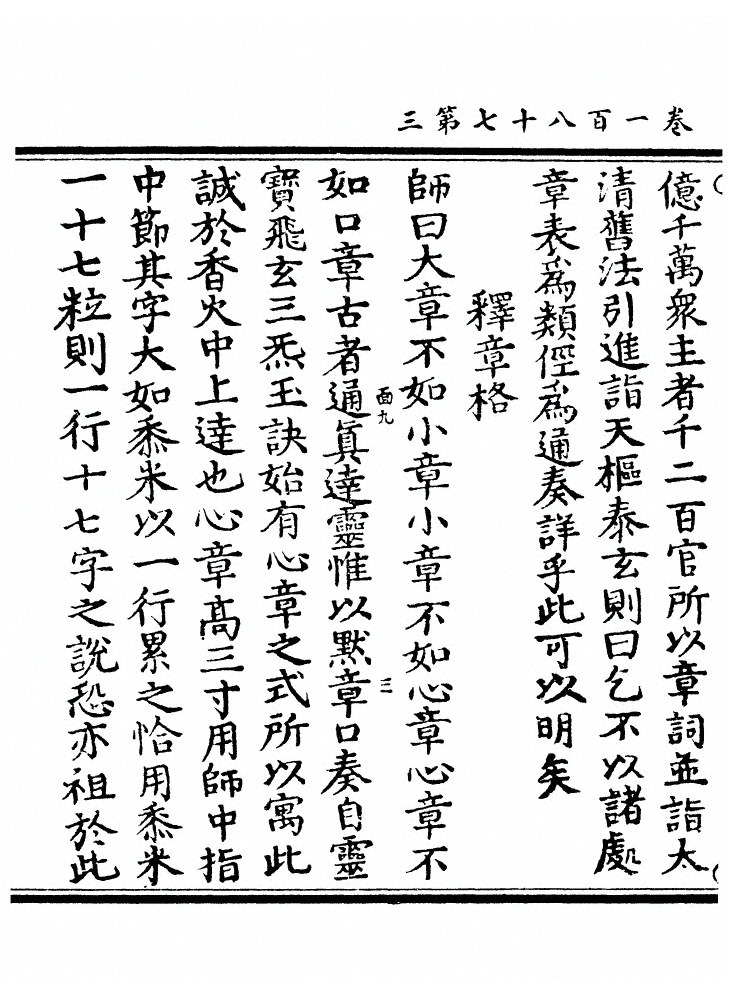 卷一百八十七第三
億千萬衆主者千二百官所以章詞並詣太
清舊法引進詣天樞泰玄則曰乞不以諸處
章表爲類徑爲通奏詳乎此可以明矣
釋章格
師曰大章不如小章小章不如心章心章不
面九
三
如口章古者通眞達靈惟以默章口奏自靈
寶飛玄三炁玉訣始有心章之式所以寓此
誠於香火中上達也心章高三寸用師中指
中節其字大如黍米以一行累之恰用黍米
一十七粒則一行十七字之說恐亦祖於此